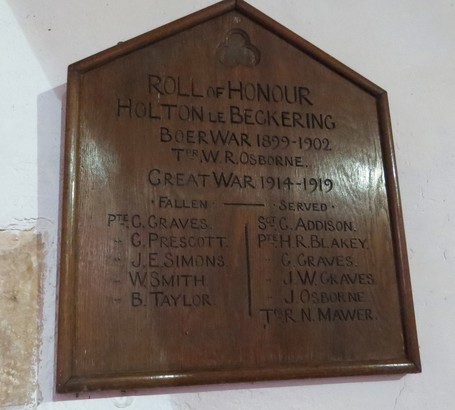 ROLL OF HONOUR
HOLTON LE BECKERING
BOER WAR 1899-1902
TPR. W. R. OSBORNE.
GREAT WAR 1914-1919
· FALLEN · — · SERVED ·
PTE. C. GRAVES.
" C. PRESCOTT.
" J. E. SIMONS.
" W. SMITH.
" B. TAYLOR.
SGT. C. ADDISON.
PTE. H R. BLAKEY.
" C. GRAVES.
" J. W. GRAVES.
" J. OSBORNE.
TPR. R N. MAWER.